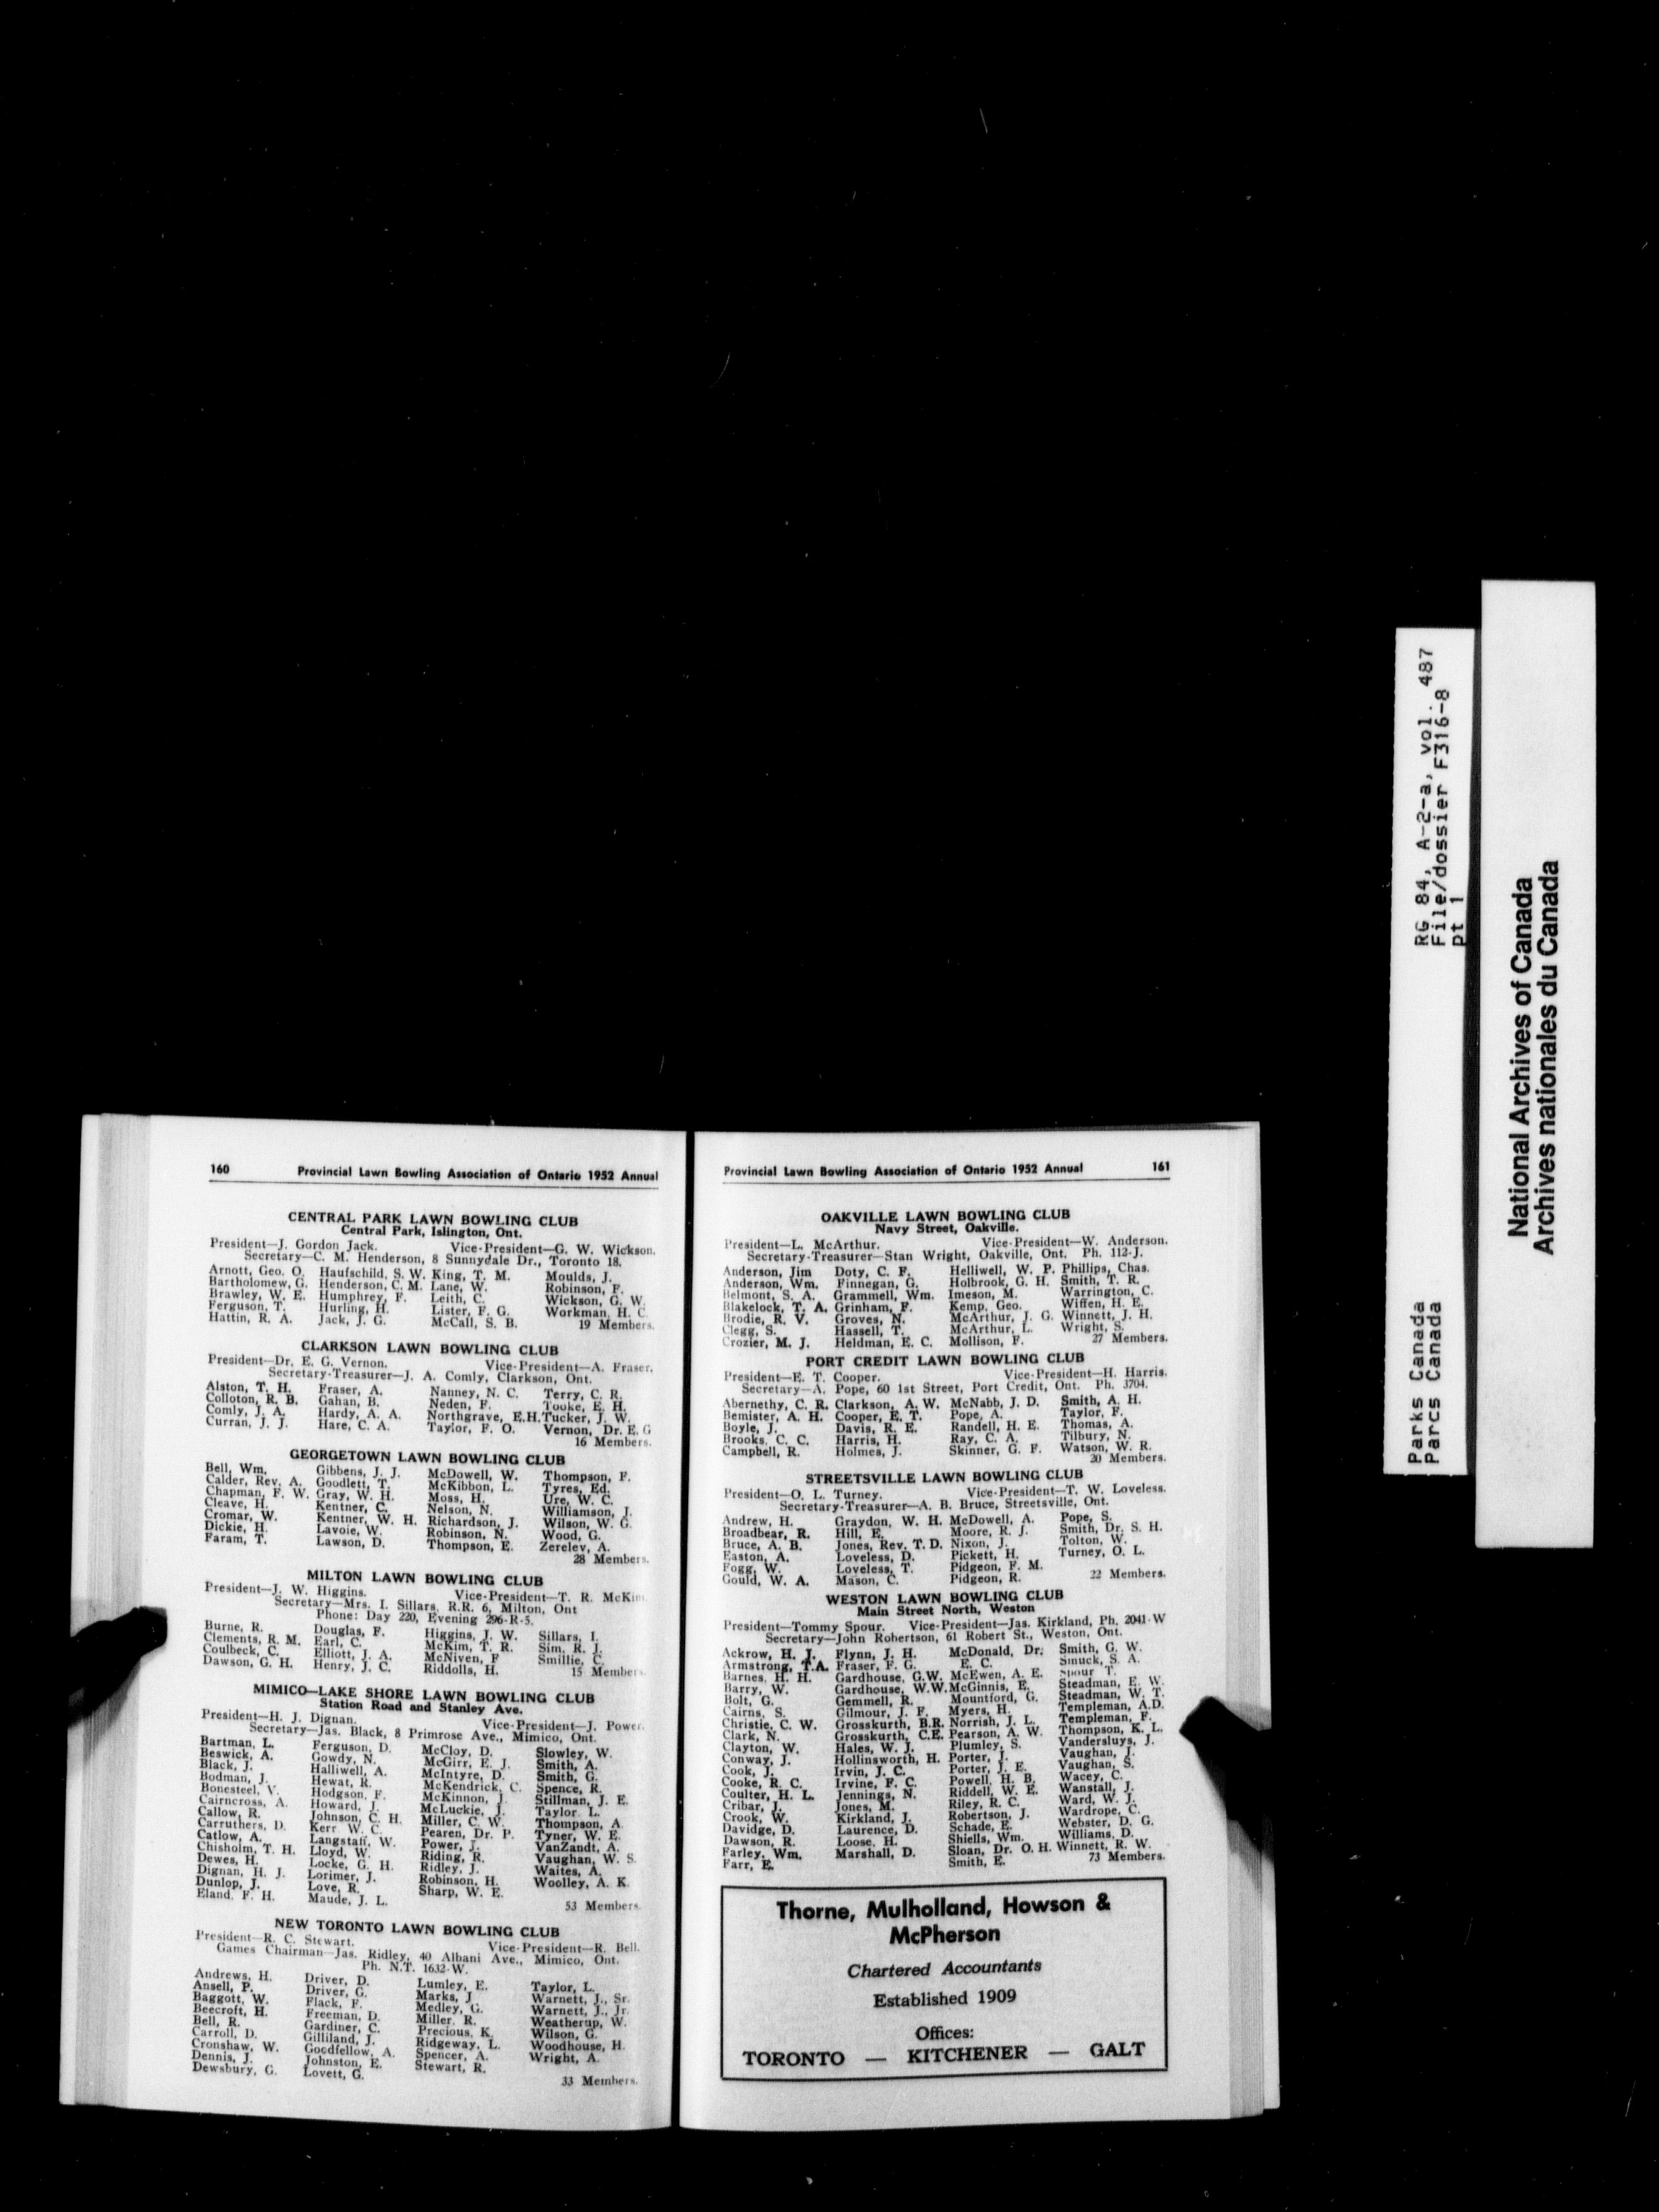 160 Provincial Lawn Bowling Association of Ontario 1952 Annual
CENTRAL PARK LAWN BOWLING CLUB
Central Park, Islington, Ont.
President—J. Gordon Jack. Vice-President—G. W. Wickson.
Secretary—C. M. Henderson, 8 Sunnydale Dr., Toronto 18.
Arnott, Geo. O. Haufschild, S. W. King, T. M. Moulds, J.
Bartholomew, G. Henderson, C. M. Lane, W. Robinson, F.
Brawley, W. E. Humphrey, F. Leith, C. Wickson, G. W.
Ferguson, T. Hurling, H. Lister, F. G. Workman, H. C.
Hattin, R. A. Jack, J. G. McCall, S. B. 19 Members.
CLARKSON LAWN BOWLING CLUB
President—Dr. E. G. Vernon. Vice-President—A. Fraser.
Secretary-Treasurer—J. A. Comly, Clarkson, Ont.
Alston, T. H. Fraser, A. Nanney, N. C. Terry, C. R.
Colloton, R. B. Gahan, B. Neden, F. Tooke, E. H.
Comly, J. A. Hardy, A. A. Northgrave, E.H. Tucker, J. W.
Curran, J. J. Hare, C. A. Taylor, F. O. Vernon, Dr. E. G
16 Members.
GEORGETOWN LAWN BOWLING CLUB
Bell, Wm. Gibbens, J. J. McDowell, W. Thompson, F.
Calder, Rev. A. Goodlett, T. McKibbon, L. Tyres, Ed.
Chapman, F. W. Gray, W. H. Moss, H. Ure, W. C.
Cleave, H. Kentner, C. Nelson, N. Williamson, J.
Cromar, W. Kentner, W. H. Richardson, J. Wilson, W. G.
Dickie, H. Lavoie, W. Robinson, N. Wood, G.
Faram, T. Lawson, D. Thompson, E. Zerelev, A.
28 Members.
MILTON LAWN BOWLING CLUB
President—J. W. Higgins. Vice-President—T. R. McKim
Secretary—Mrs. I. Sillars, R.R. 6, Milton, Ont
Phone: Day 220, Evening 296-R-5.
Burne, R. Douglas, F. Higgins, J. W. Sillars, I.
Clements, R. M. Earl, C. McKim, T. R. Sim, R. J.
Coulbeck, C. Elliott, J. A. McNiven, F Smillie, C.
Dawson, G. H. Henry, J. C. Riddolls, H. 15 Members.
MIMICO—LAKE SHORE LAWN BOWLING CLUB
Station Road and Stanley Ave.
President—H. J. Dignan. Vice-President—J. Power.
Secretary—Jas. Black, 8 Primrose Ave., Mimico, Ont.
Bartman, L. Ferguson, D. McCloy, D. Slowley, W.
Beswick, A. Gowdy, N. McGirr, E. J. Smith, A.
Black, J. Halliwell, A. McIntyre, D. Smith, G.
Bodman, J. Hewat, R. McKendrick, C. Spence, R.
Bonesteel, V. Hodgson, F. McKinnon, J. Stillman, J. E.
Cairncross, A. Howard, J. McLuckie, J. Taylor L.
Callow, R. Johnson, C. H. Miller, C. W. Thompson, A.
Carruthers, D. Kerr W. C. Pearen, Dr. P. Tyner, W. E.
Catlow, A. Langstaff, W. Power, J. VanZandt, A.
Chisholm, T. H. Lloyd, W. Riding, R. Vaughan, W. S.
Dewes, H. Locke, G. H. Ridley, J. Waites, A.
Dignan, H. J. Lorimer, J. Robinson, H. Woolley, A. K.
Dunlop, J. Love, R. Sharp, W. E.
Eland, F. H. Maude, J. L. 53 Members.
NEW TORONTO LAWN BOWLING CLUB
President—R. C. Stewart. Vice-President—R. Bell.
Games Chairman—Jas. Ridley, 40 Albani Ave., Mimico, Ont.
Ph. N.T. 1632-W.
Andrews, H. Driver, D. Lumley, E. Taylor, L.
Ansell, P. Driver, G. Marks, J Warnett, J., Sr.
Baggott, W. Flack, F. Medley, G. Warnett, J., Jr.
Beecroft, H. Freeman, D. Miller, R. Weatherup, W.
Bell, R. Gardiner, C. Precious, K. Wilson, G.
Carroll, D. Gilliland, J. Ridgeway, L. Woodhouse, H.
Cronshaw, W. Goodfellow, A. Spencer, A. Wright, A.
Dennis, J. Johnston, E. Stewart, R.
Dewsbury, G. Lovett, G. 33 Members.
Provincial Lawn Bowling Association of Ontario 1952 Annual 161
OAKVILLE LAWN BOWLING CLUB
Navy Street, Oakville.
President—L. McArthur. Vice-President—W. Anderson.
Secretary-Treasurer—Stan Wright, Oakville, Ont. Ph. 112-J.
Anderson, Jim Doty, C. F. Helliwell, W. P. Phillips, Chas.
Anderson, Wm. Finnegan, G. Holbrook, G. H. Smith, T. R.
Belmont, S. A. Grammell, Wm. Imeson, M. Warrington, C.
Blakelock, T. A. Grinham, F. Kemp, Geo. Wiffen, H. E.
Brodie, R. V. Groves, N. McArthur, J. G. Winnett, J. H.
Clegg, S. Hassell, T. McArthur, L. Wright, S.
Crozier, M. J. Heldman, E. C. Mollison, F. 27 Members.
PORT CREDIT LAWN BOWLING CLUB
President—E. T. Cooper. Vice-President—H. Harris.
Secretary—A. Pope, 60 1st Street, Port Credit, Ont. Ph. 3704.
Abernethy, C. R. Clarkson, A. W. McNabb, J. D. Smith, A. H.
Bemister, A. H. Cooper, E. T. Pope, A. Taylor, F.
Boyle, J. Davis, R. E. Randell, H. E. Thomas, A.
Brooks, C. C. Harris, H. Ray, C. A. Tilbury, N.
Campbell, R. Holmes, J. Skinner, G. F. Watson, W. R.
20 Members.
STREETSVILLE LAWN BOWLING CLUB
President—O. L. Turney. Vice-President—T. W. Loveless.
Secretary-Treasurer—A. B. Bruce, Streetsville, Ont.
Andrew, H. Graydon, W. H. McDowell, A. Pope, S.
Broadbear, R. Hill, E. Moore, R. J. Smith, Dr. S. H.
Bruce, A. B. Jones, Rev. T. D. Nixon, J. Tolton, W.
Easton, A. Loveless, D. Pickett, H. Turney, O. L.
Fogg, W. Loveless, T. Pidgeon, F. M.
Gould, W. A. Mason, C. Pidgeon, R. 22 Members.
WESTON LAWN BOWLING CLUB
Main Street North, Weston
President—Tommy Spour. Vice-President—Jas. Kirkland, Ph. 2041-W
Secretary—John Robertson, 61 Robert St., Weston, Ont.
Ackrow, H. J. Flynn, J. H. McDonald, Dr. Smith, G. W.
Armstrong, T.A. Fraser, F. G. E. C. Smuck, S. A.
Barnes, H. H. Gardhouse, G.W. McEwen, A. E. Spour T.
Barry, W. Gardhouse, W.W. McGinnis, E. Steadman, E. W.
Bolt, G. Gemmell, R. Mountford, G. Steadman, W. T.
Cairns, S. Gilmour, J. F. Myers, H. Templeman, A.D.
Christie, C. W. Grosskurth, B.R. Norrish, J. L. Templeman, F.
Clark, N. Grosskurth, C.E. Pearson, A. W. Thompson, K. L.
Clayton, W. Hales, W. J. Plumley, S. Vandersluys, J.
Conway, J. Hollinsworth, H. Porter, J. Vaughan, J.
Cook, J. Irvin, J. C. Porter, J. E. Vaughan, S.
Cooke, R. C. Irvine, F. C. Powell, H. B. Wacey, C.
Coulter, H. L. Jennings, N. Riddell, W. E. Wanstall, J.
Cribar, J. Jones, M. Riley, R. C. Ward, W. J.
Crook, W. Kirkland, J. Robertson, J. Wardrope, C.
Davidge, D. Laurence, D. Schade, E. Webster, D. G.
Dawson, R. Loose, H. Shiells, Wm. Williams, D.
Farley, Wm. Marshall, D. Sloan, Dr. O. H. Winnett, R. W.
Farr, E. Smith, E. 73 Members.
Thorne, Mulholland, Howson &
McPherson
Chartered Accountants
Established 1909
Offices:
TORONTO — KITCHENER — GALT
RG 84, A-2-a, vol. 487
File/dossier F316-8
pt 1
Parks Canada
Parcs Canada
National Archives of Canada
Archives nationales du Canada